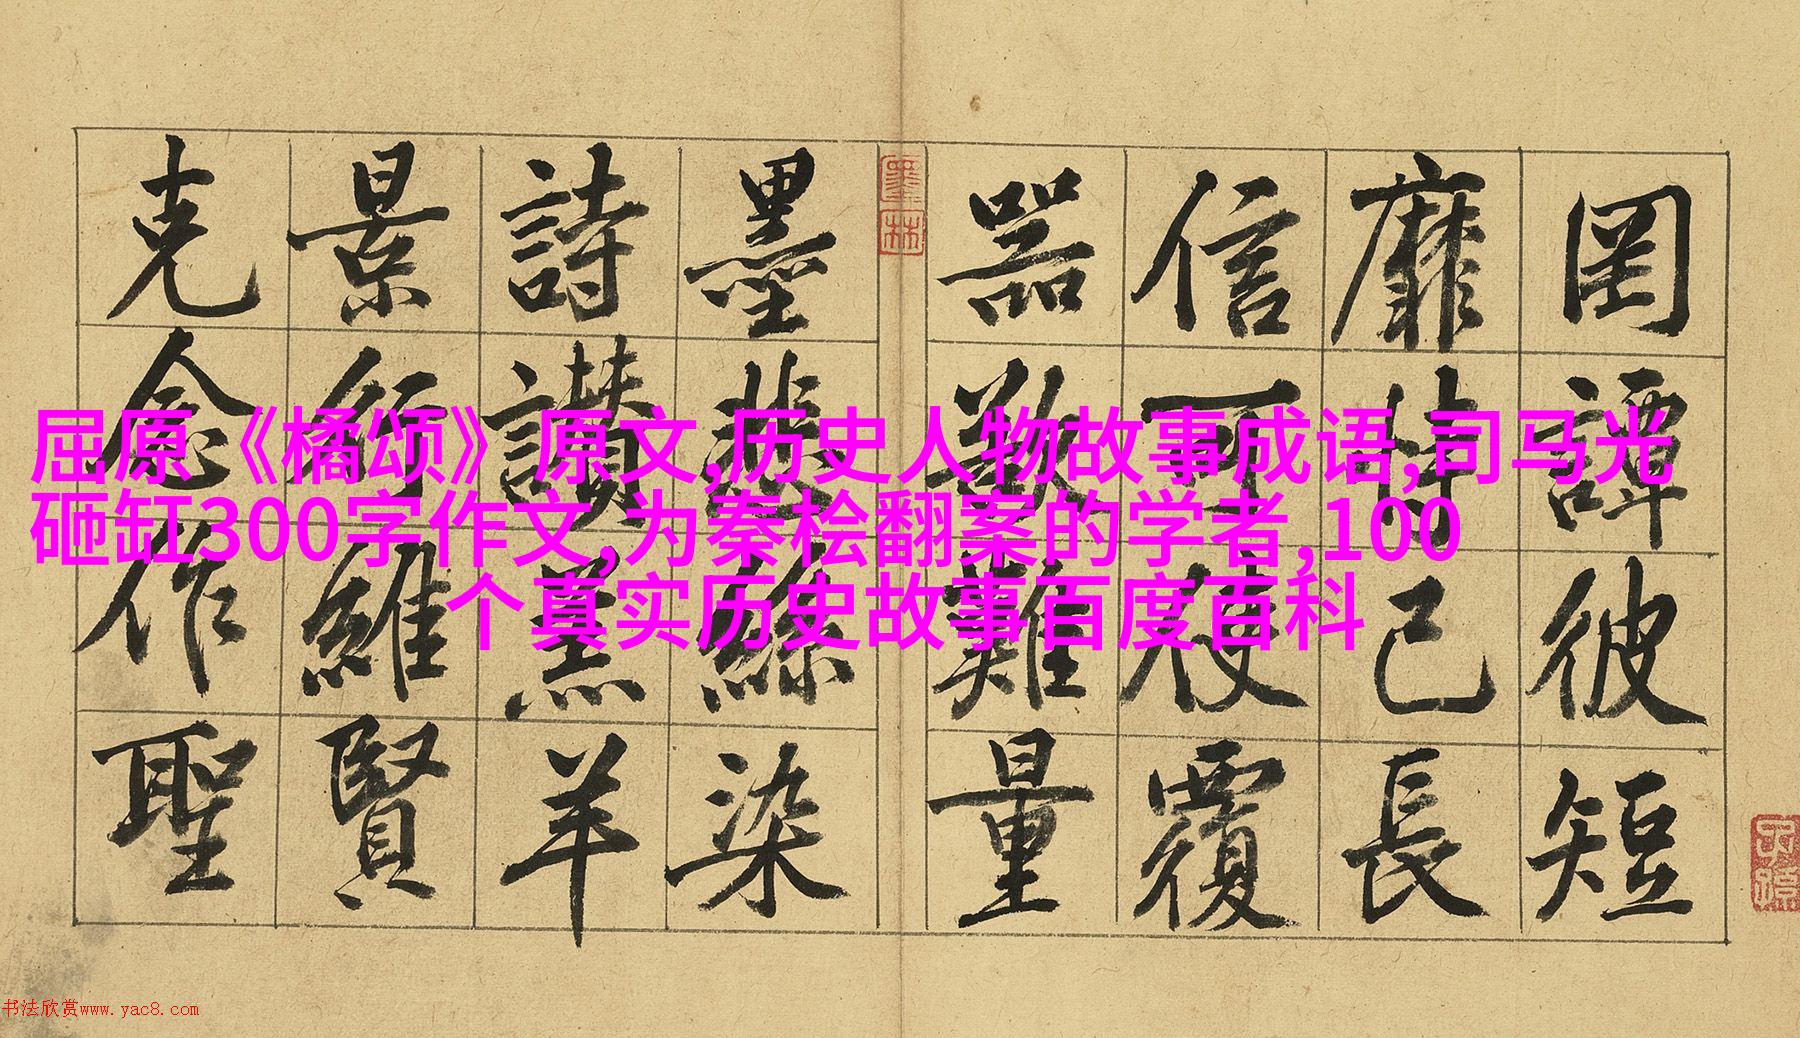 罔譚彼短
靡恃己長
信可使覆
器欲難量
墨悲絲染
詩讃羔羊
景行維賢
克念作聖
墨林
屈原《橘颂》原文,历史人物故事成语,司马光
砸缸300字作文,为秦桧翻案的学者,100
个真实历史故事百度百科
书法欣赏www.yac8.com